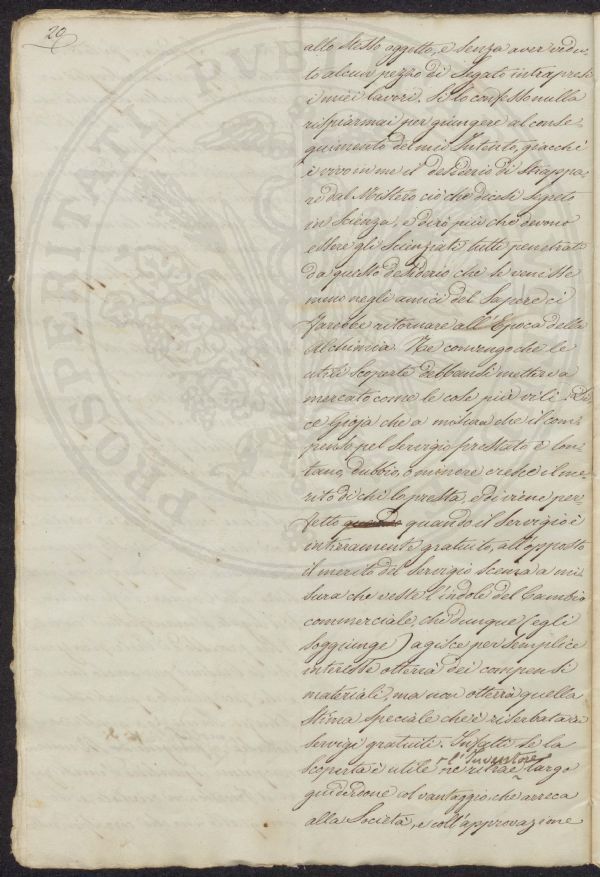 20
allo stesso oggetto, e senza aver vedu-
to alcun pezzo di Segato intrapresi
i miei lavori. Sì lo confesso nulla
rispiarmai per giungere al conse-
guimento del mio Intento, giacchè
è vivo in me il desiderio di strappa-
re dal Mistero ciò che dicesi segreto
in Scienza, e dirò più che devono
essere gli Scienziati tutti penetrati
da questo desiderio che se venisse
meno negli amici del Sapere ci
farebbe ritornare all'Epoca della
Alchimia. Ne convengo che le
utili scoperte debbansi mettere a
mercato come le cose più vili. Di-
ce Gioja che a misura che il com-
penso pel Servigio prestato è lon-
tano, dubbio, o minore cresce il me-
rito di chi lo presta, e diviene per-
fetto quando quando il Servigio è
intieramente gratuito, all'opposto
il merito del Servigio scema a mi-
sura che veste l'indole del Cambio
commerciale, chi dunque (egli
soggiunge) agisce per semplice
interesse otterrà dei compensi
materiali, ma non otterrà quella
stima speciale che è riserbata ai
servigi gratuiti. Infatti se la
scoperta è utile l'Inventore ne ritrae largo
guiderdone al vantaggio, che arreca
alla Società, e coll'approvazione
PROSPERITATI PUBL